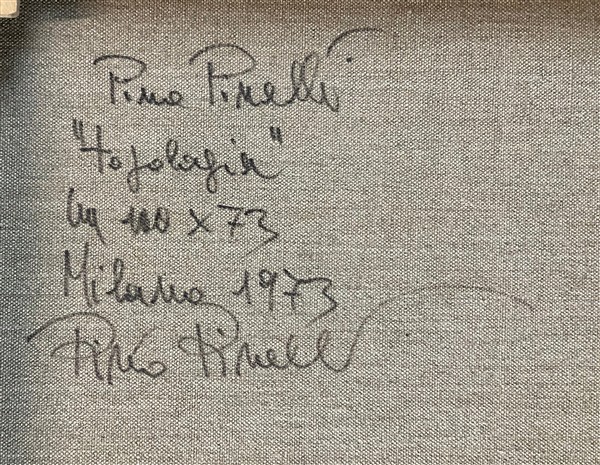 Pino Pinelli
"topologia"
cm 110 x 73
Milano 1973
Pino Pinelli